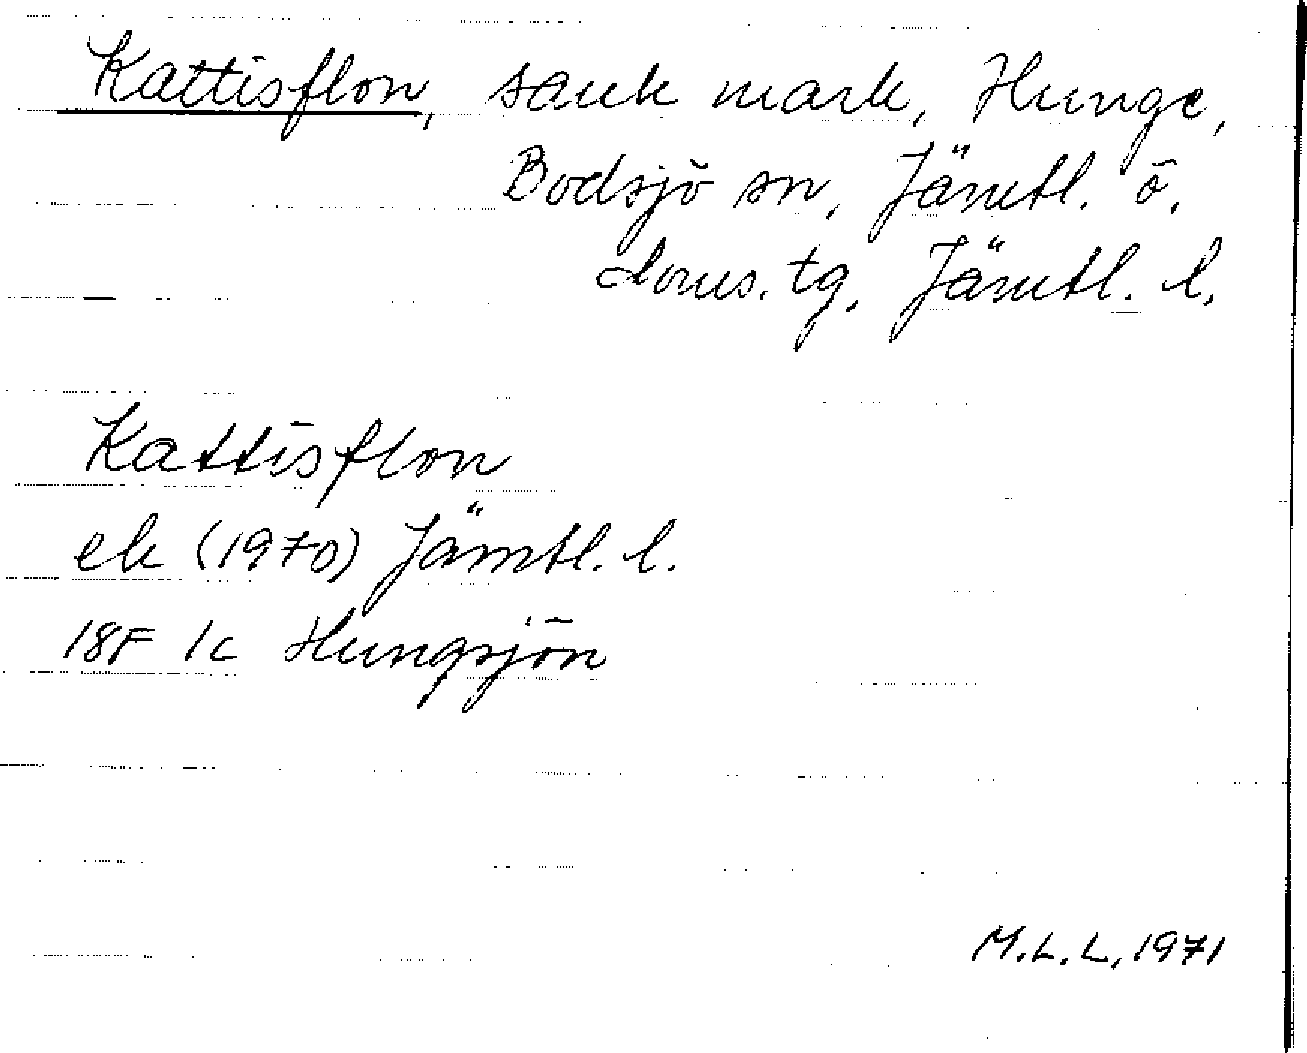 Kattisflon, sank mark, Hunge,
Bodsjö sn, Jämtl. ö.
doms. tg, Jämtl. l.
Kattisflon
ek (1970) Jämtl. l.
18F 1c Hungsjön
M.L.L, 1971